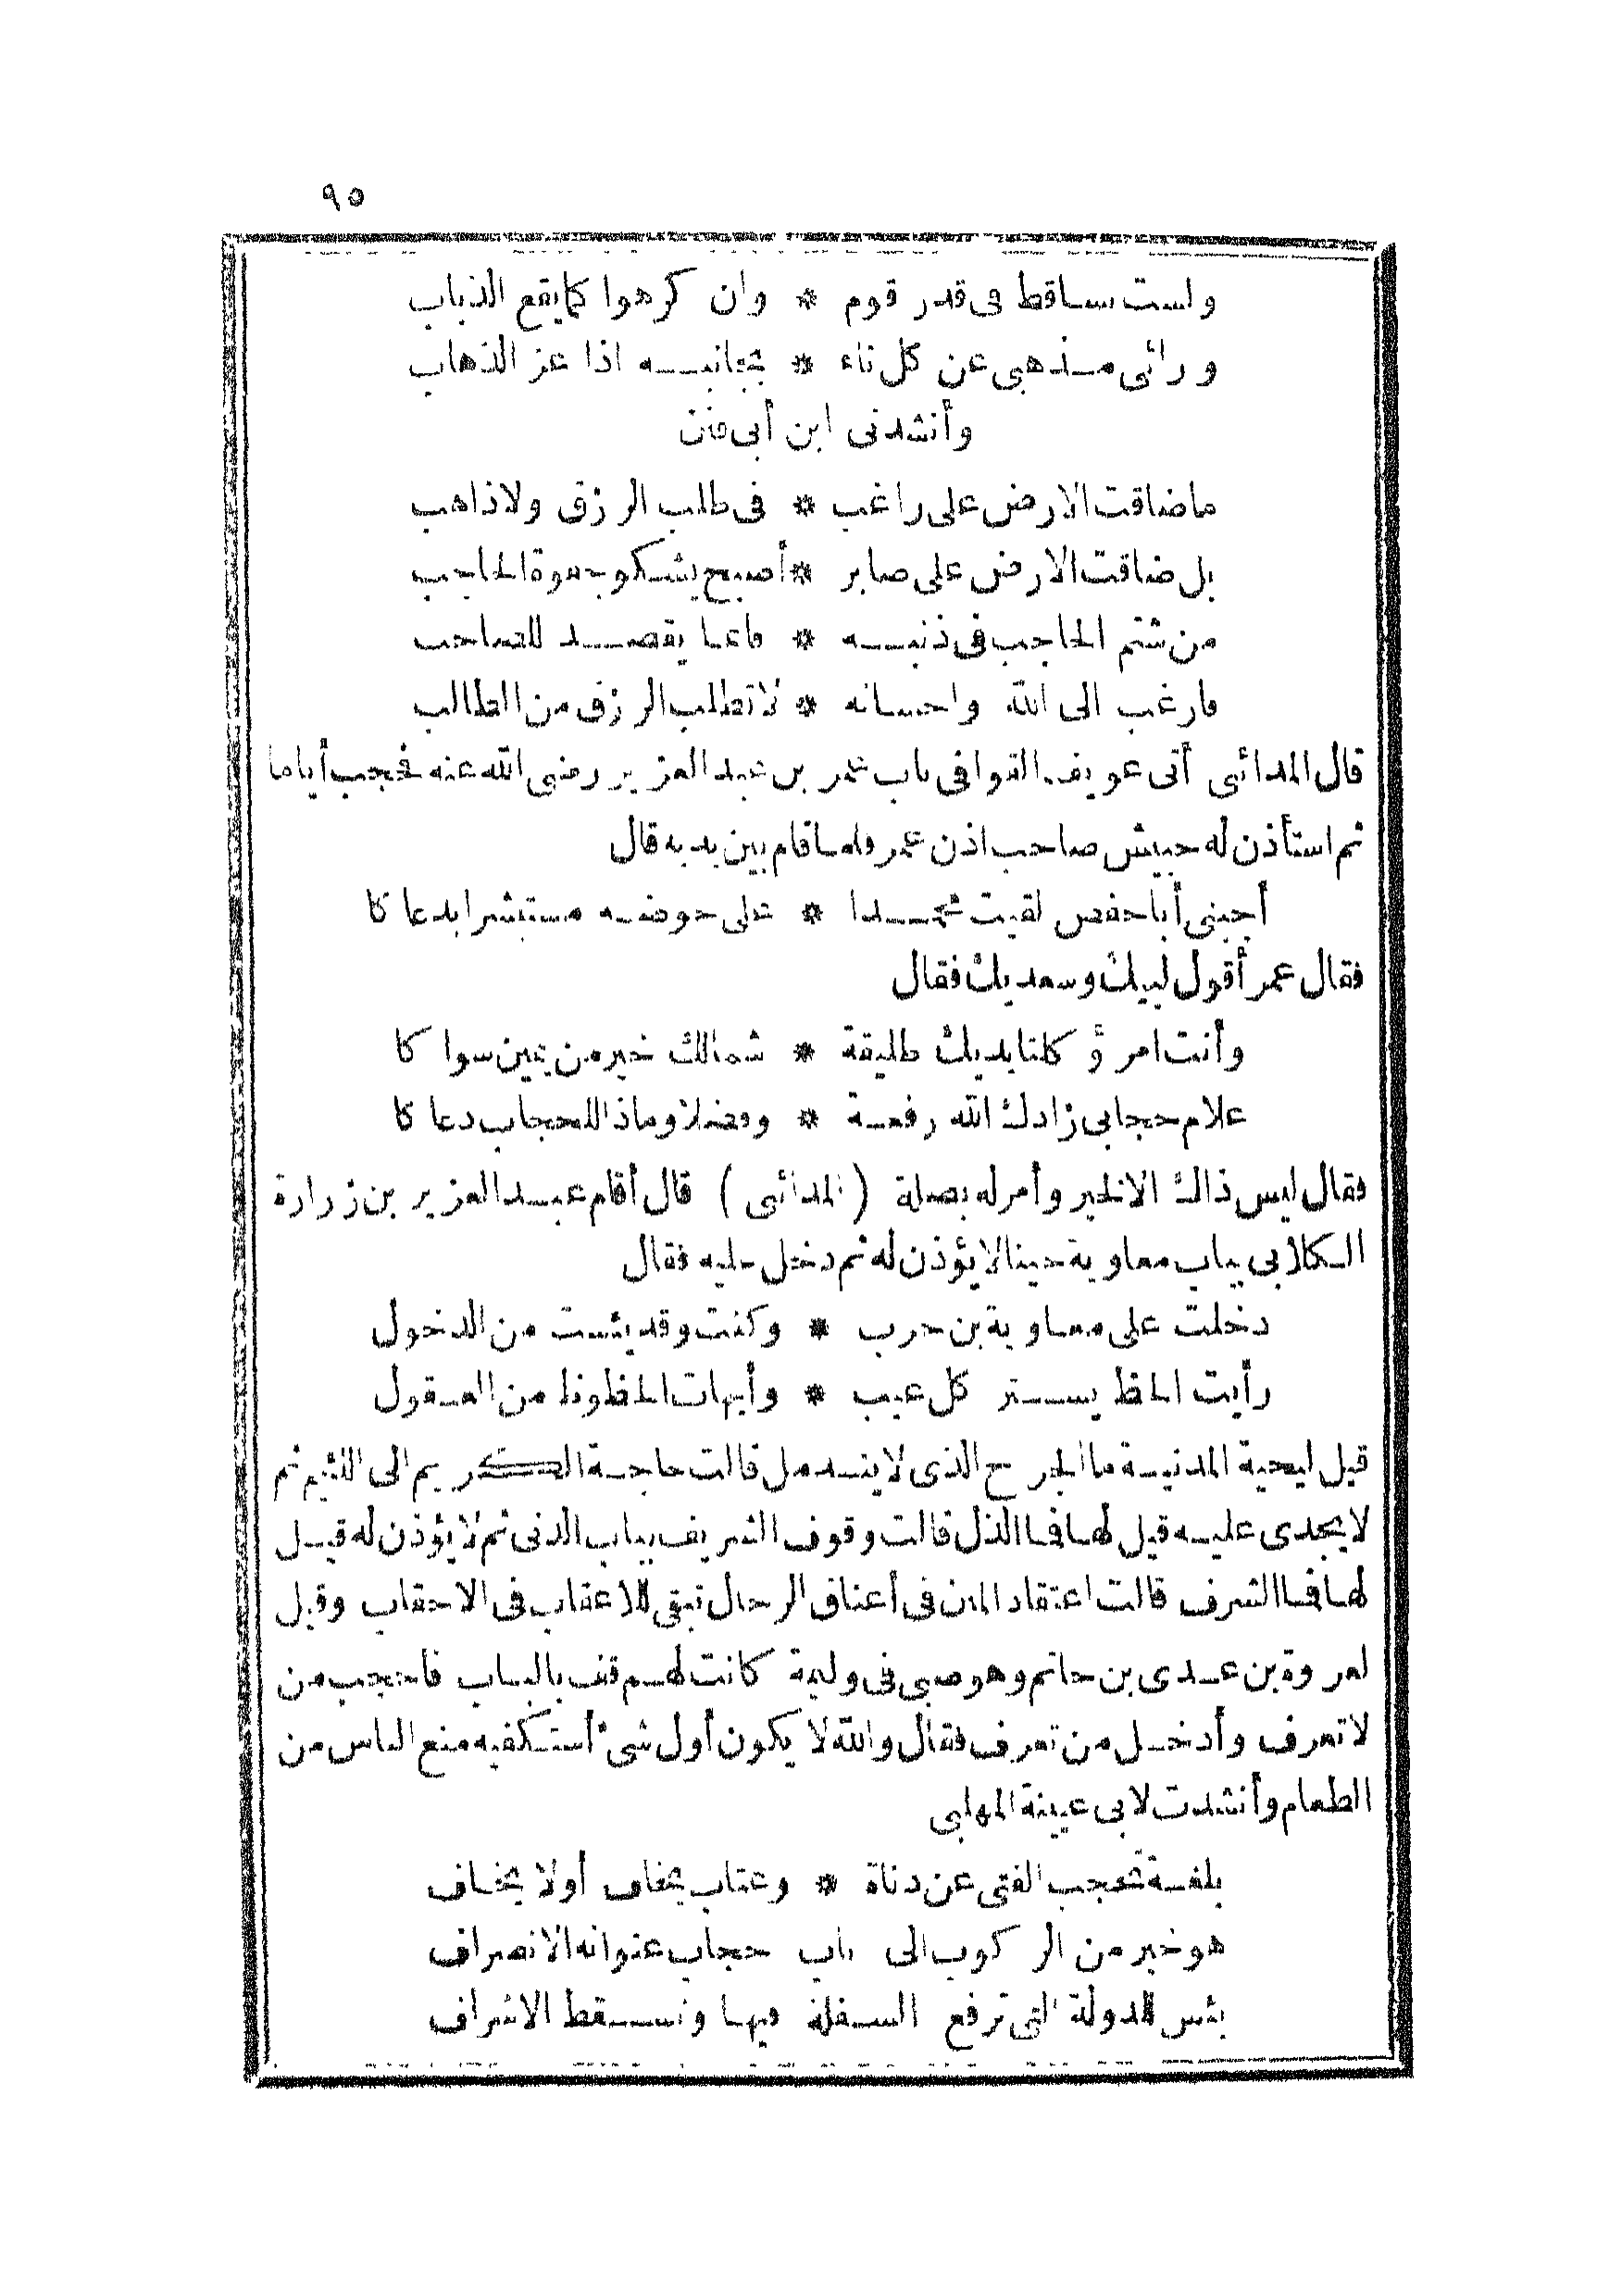 ٩٥
ولست بساقط فى قدر قوم * وان كرهوا كما يقع الذباب
ورائى مذهبى عن كل ناء * بجانبه اذا عز الذهاب
وأنشدنى ابن أبى فنن
ما ضاقت الارض على راغب * فى طلب الرزق ولا ذاهب
بل ضاقت الارض على صابر * أصبح يشكو جفوة الحاجب
من شتم الحاجب فى ذنبه * فانما يقصد للصاحب
فارغب الى الله واحسانه * لا تطلب الرزق من الطالب
قال المدائنى أتى عويف القوافى باب عمر بن عبد العزيز رضى الله عنه فحجب أياما
ثم استأذن له حبيش صاحب اذن عمر فلما قام بين يديه قال
أجبنى أبا حفص لقيت محمدا * على حوضه مستبشرا بدعاكا
فقال عمر أقول لبيك وسعديك فقال
وأنت امرؤ كلتا يديك طليقة * شمالك خير من يمين سواكا
علام حجابى زادك الله رفعة * وفضلا وماذا للحجاب دعاكا
فقال ليس ذاك الا لخير وأمر له بصلة (المدائنى) قال أقام عبد العزيز بن زرارة
الكلابى بباب معاوية حينا لا يؤذن له ثم دخل عليه فقال
دخلت على معاوية بن حرب * وكنت وقد يئست من الدخول
رأيت الحظ يستر كل عيب * وأيهات الحظوظ من العقول
قيل ليحية المدنية ما الجرح الذى لا يندمل قالت حاجة الكريم الى اللئيم ثم
لا يجدى عليه قيل لها فما الذل قالت وقوف الشريف بباب الدنى ثم لا يؤذن له قيل
لها فما الشرف قالت اعتقاد المنن فى أعناق الرجال تبقى للاعقاب فى الاحقاب وقيل
لعروة بن عدى بن حاتم وهو صبى فى وليمة كانت لهم قف بالباب فاحجب من
لا تعرف وأدخل من تعرف فقال والله لا يكون أول شئ أستكفيه منع الناس من
الطعام وأنشدت لابى عيينة المهلبى
بلغة تحجب الفتى عن دناة * وعتاب يخاف أو لا يخاف
هو خير من الركوب الى باب حجاب عنوانه الانصراف
بئس للدولة التى ترفع السفلة فيها وتسقط الاشراف